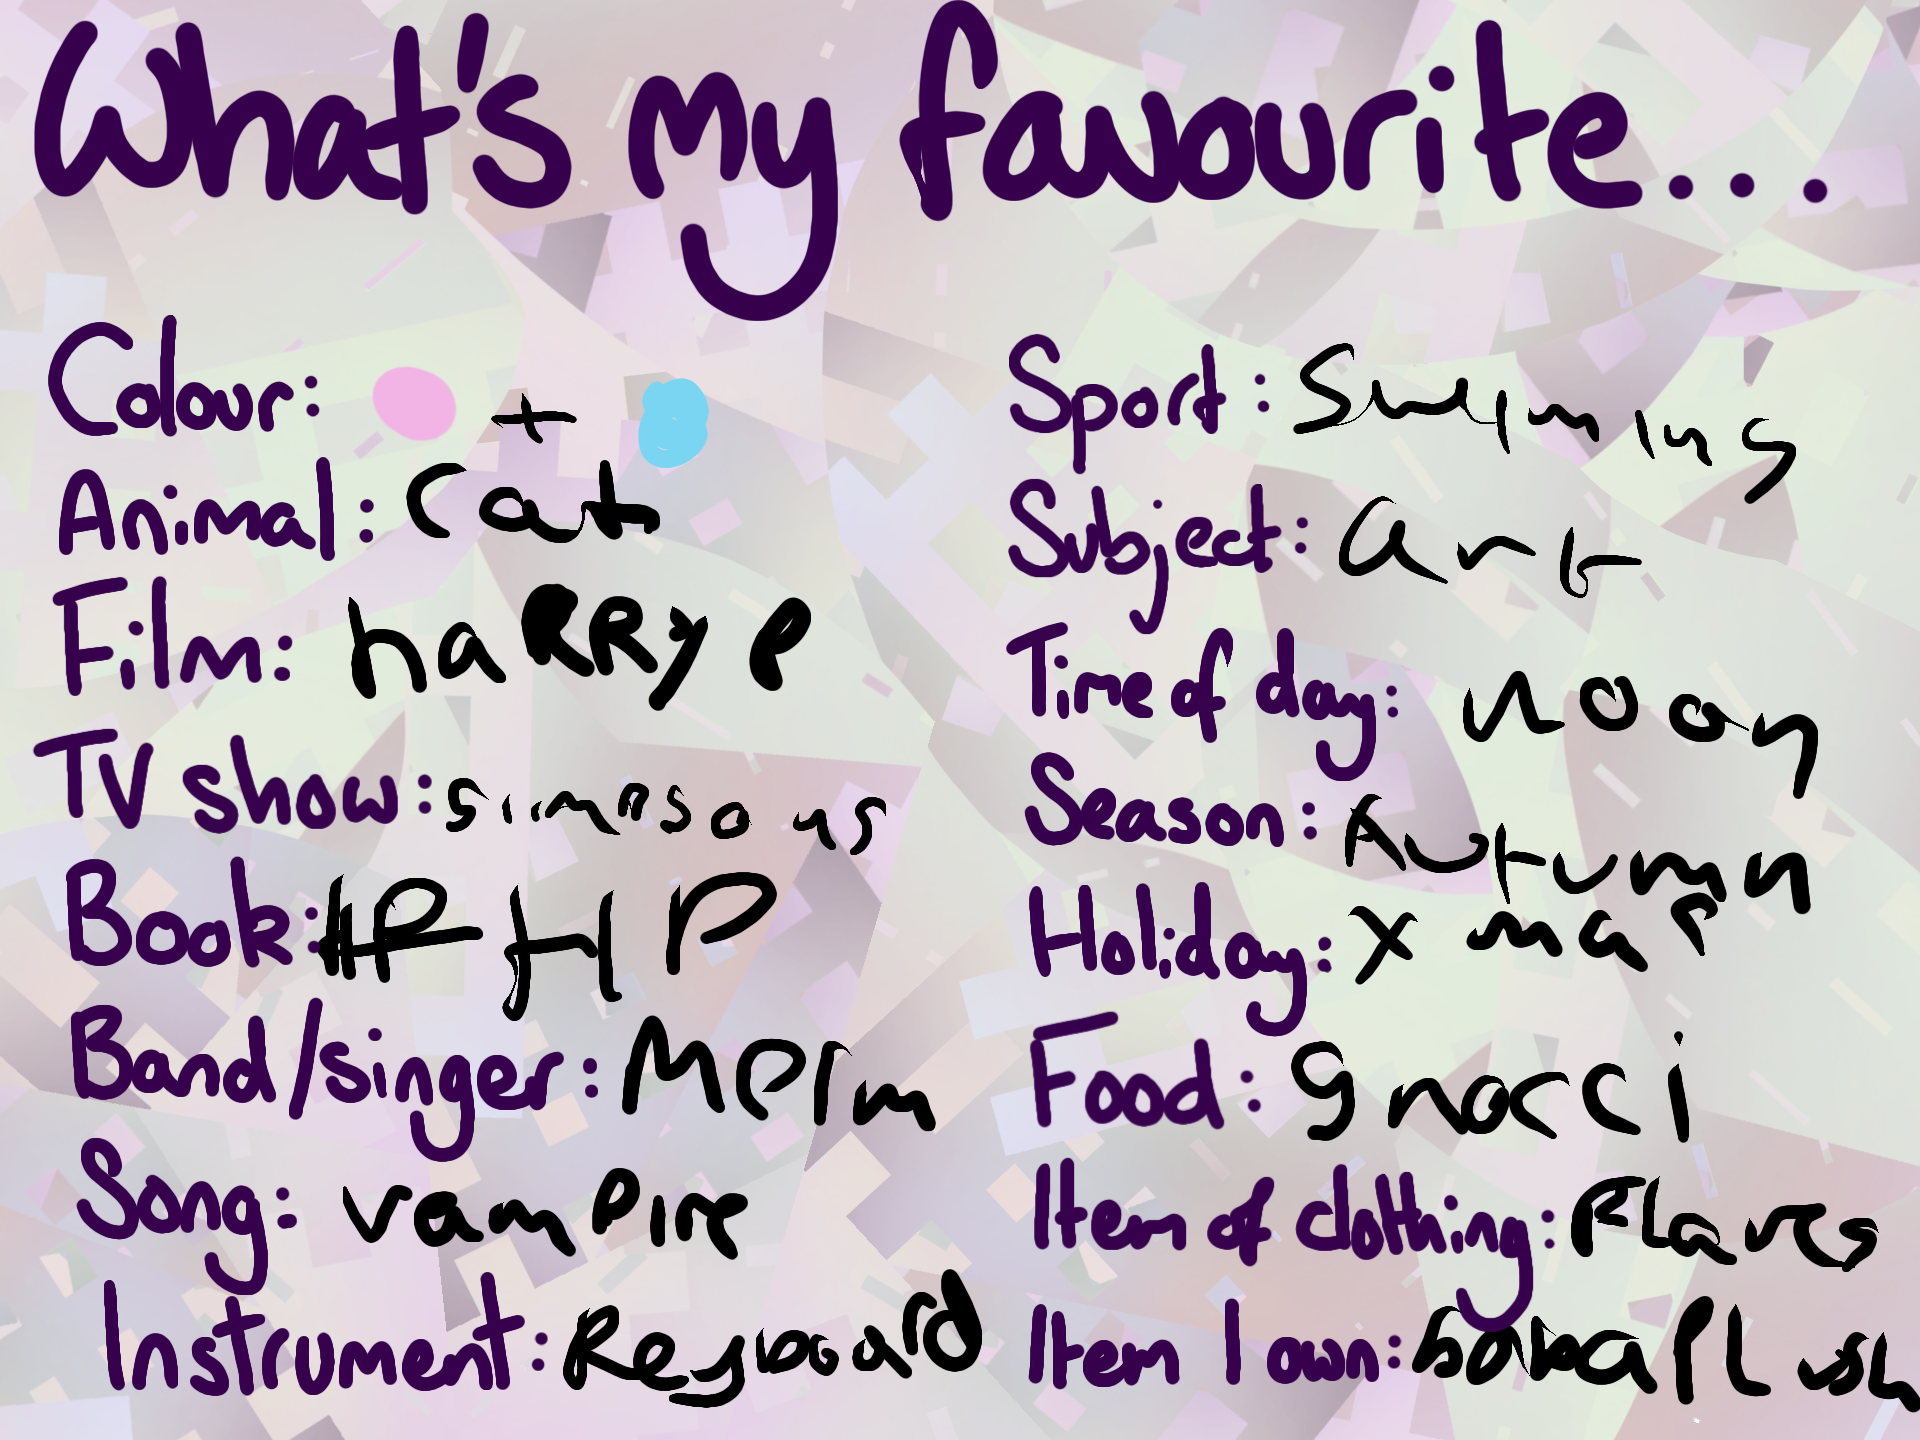 What's my favourite...
Colour: +
Animal: cat
Film: haRRy P
TV show: simpsons
Book: HP HP
Band/singer: Melm
Song: vampire
Instrument: Keyboard
Sport: Swimming
Subject: art
Time of day: noon
Season: Autumn
Holiday: Xmas
Food: gnocci
Item of clothing: Flares
Item I own: boba plush